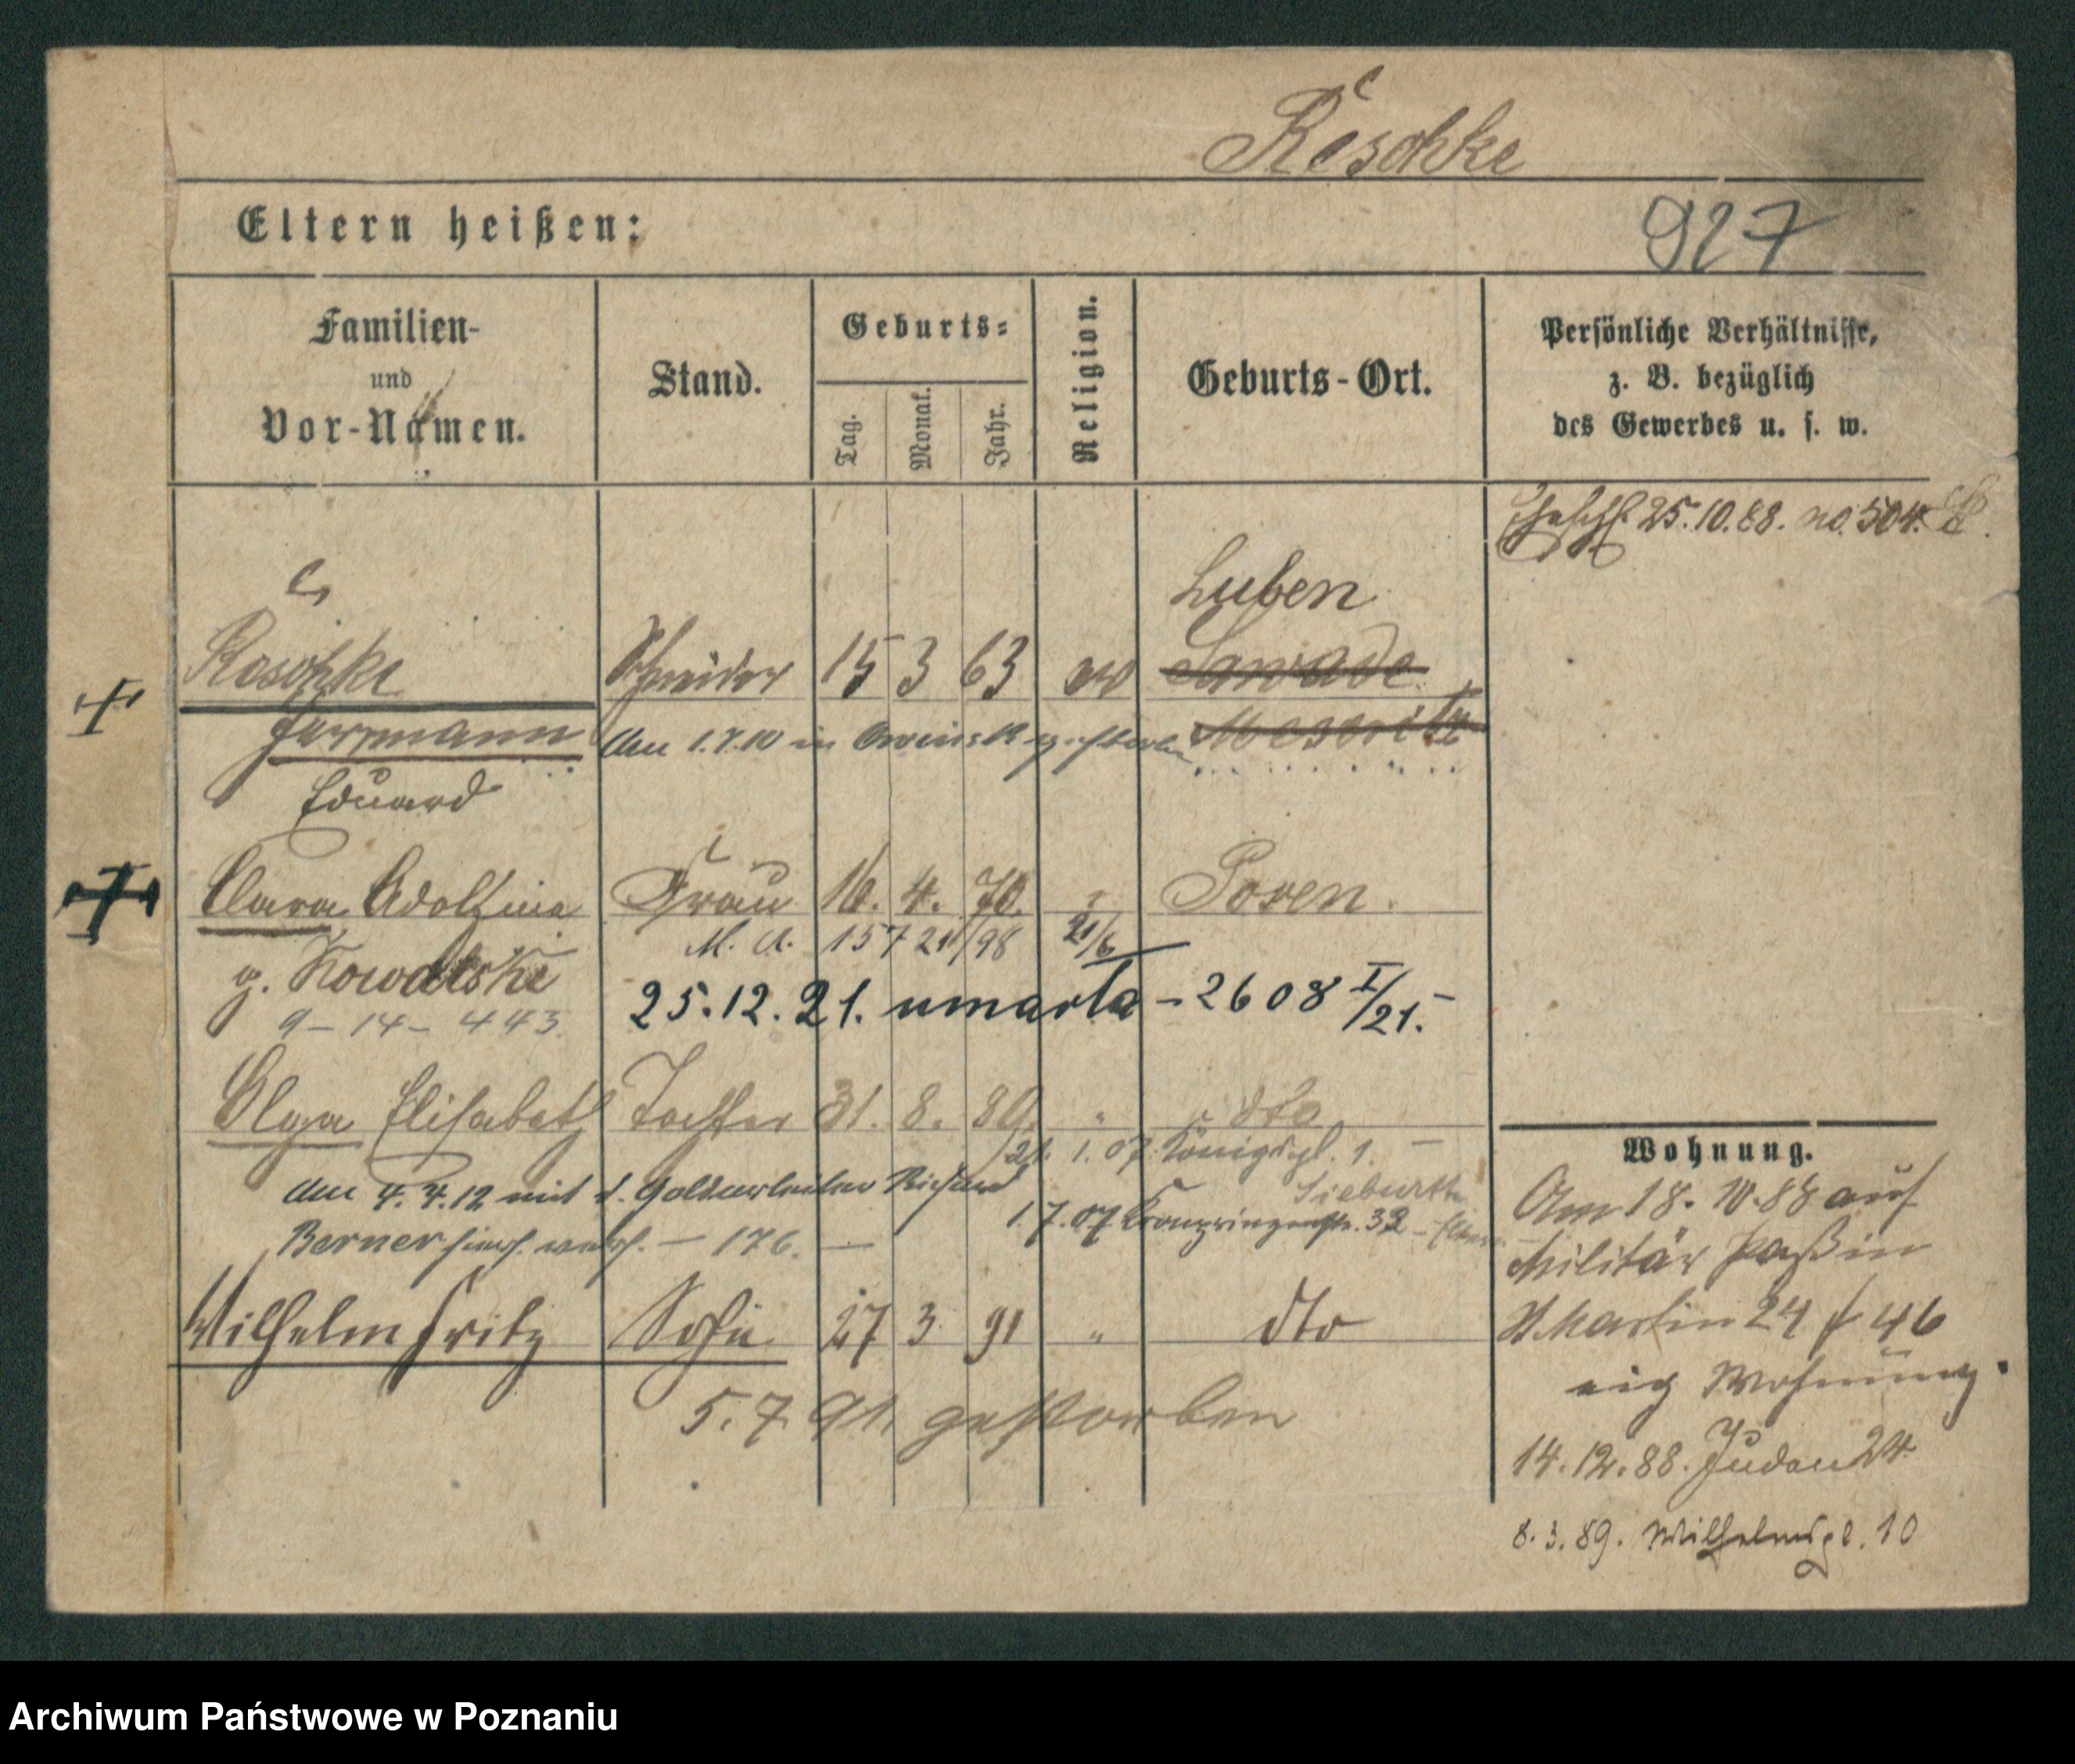 Reschke
Eltern heißen:
927
Familien-
und
Vor-Namen.
Stand.
Geburts-
Tag.
Monat.
Jahr.
Religion.
Geburts-Ort.
Persönliche Verhältnisse,
z. B. bezüglich
des Gewerbes u. s. w.
25.10.88. no. 504.
Luben
Reschke Schneider 15 3 63 ev Lawade
Herrmann Am 1.7.10 in Owinsk gestorben Meseritz
Eduard
Clara Adolfine Frau 16. 4. 70. Posen.
M. A. 157 21/98 21/6
g. Kowalske
25.12.21. umarła - 2608 I/21.
9 - 14 - 443.
Olga Elisabeth Tochter 31. 8. 89. " dto
21. 1. 07. Königspl. 1. -
Am 4. 4. 12 mit d. Goldarbeiter Richard Sieburth
1.7.07 Kronprinzenstr. 32 - Eltern
Berner hier verh. - 176. -
Wilhelm Fritz Sohn 27 3 91 " dto
5. 7. 91. gestorben
Wohnung.
Am 18. 10. 88 auf
Militär Paß in
St Martin 24 46
eig Wohnung.
14. 12. 88. Juden 24.
8. 3. 89. Wilhelmspl. 10
Archiwum Państwowe w Poznaniu